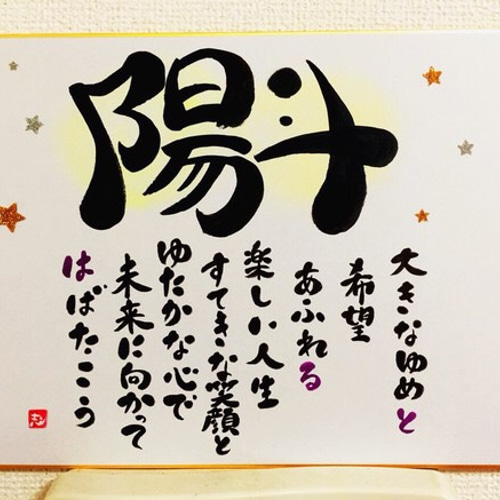 陽斗
大きなゆめと
希望
あふれる
楽しい人生
すてきな笑顔と
ゆたかな心で
未来に向かって
はばたこう